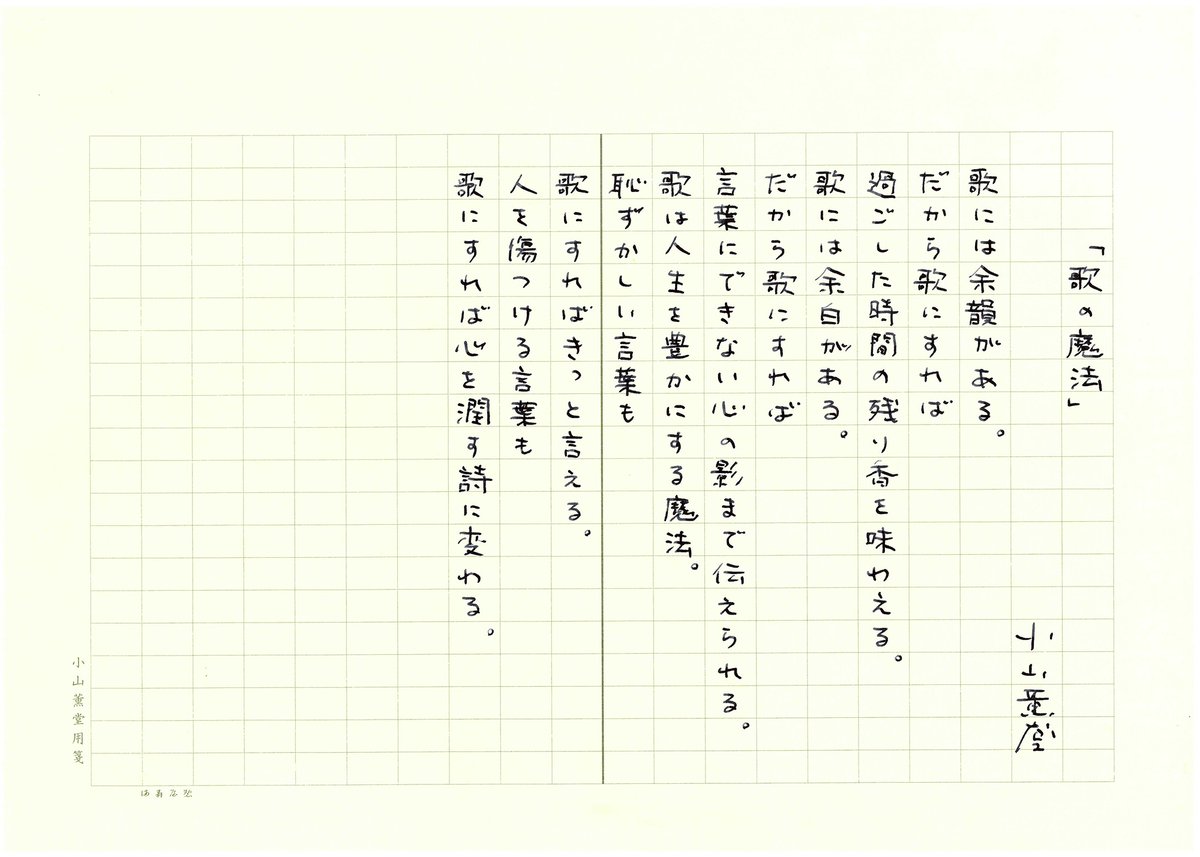 「歌の魔法」
小山薫堂
歌には余韻がある。
だから歌にすれば
過ごした時間の残り香を味わえる。
歌には余白がある。
だから歌にすれば
言葉にできない心の影まで伝えられる。
歌は人生を豊かにする魔法。
恥ずかしい言葉も
歌にすればきっと言える。
人を傷つける言葉も
歌にすれば心を潤す詩に変わる。
小山薫堂用箋